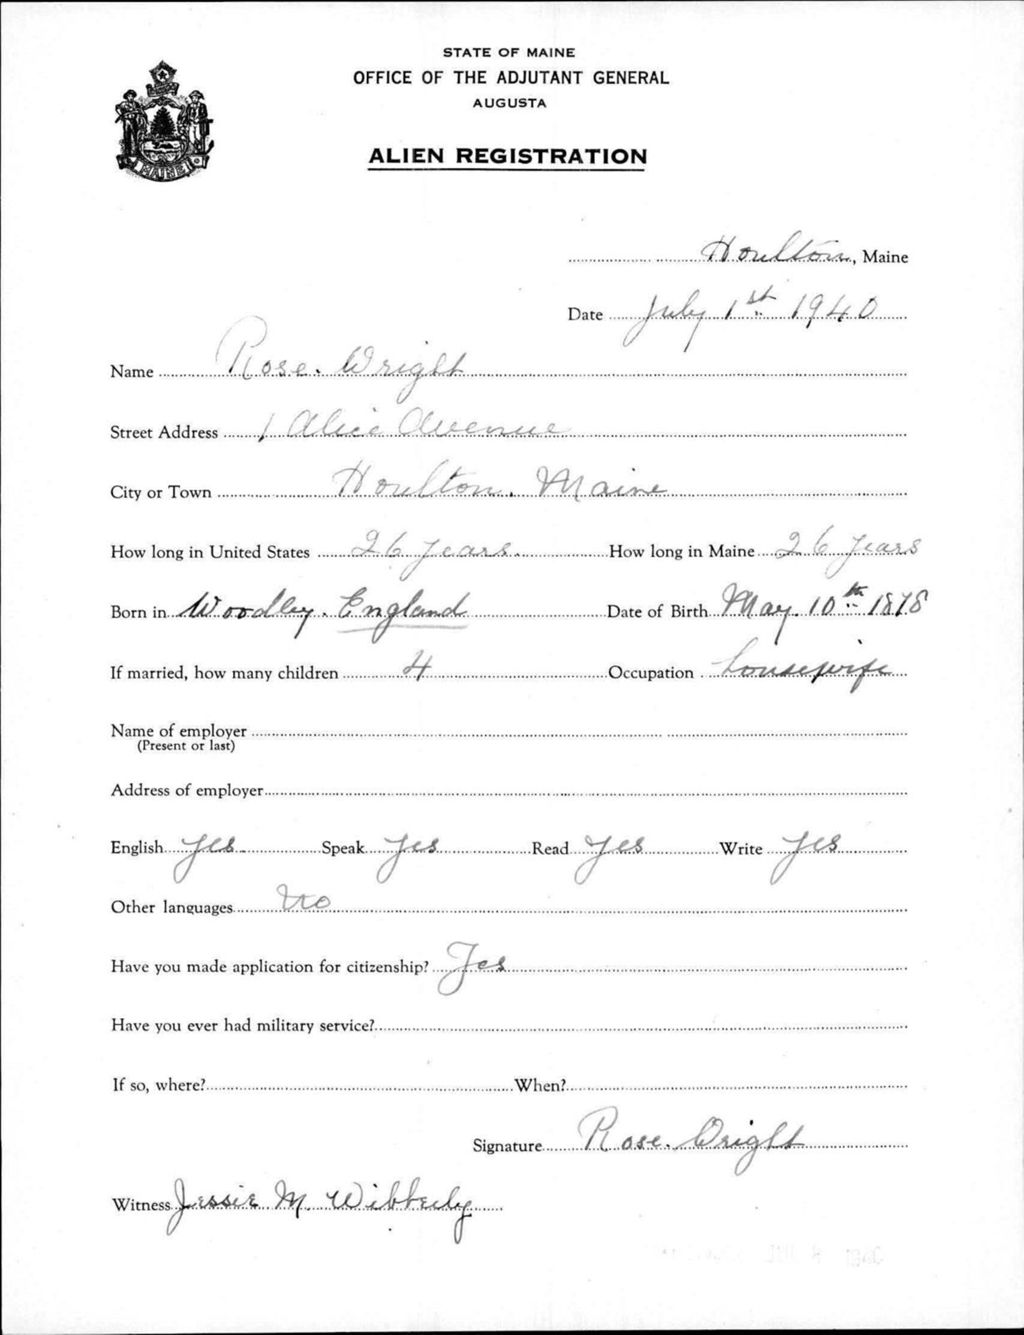 STATE OF MAINE
OFFICE OF THE ADJUTANT GENERAL
AUGUSTA
ALIEN REGISTRATION
MAINE
Houlton, Maine
Date July 1st 1940
Name Rose. Wright
Street Address 1 Alice Avenue
City or Town Houlton. Maine
How long in United States 26 years. How long in Maine 26 years
Born in Woodley. England Date of Birth May. 10th 1878
If married, how many children 4 Occupation housewife
Name of employer
(Present or last)
Address of employer
English yes Speak yes Read yes Write yes
Other languages No
Have you made application for citizenship? Yes
Have you ever had military service?
If so, where? When?
Signature Rose. Wright
Witness Jessie M. Wibberly